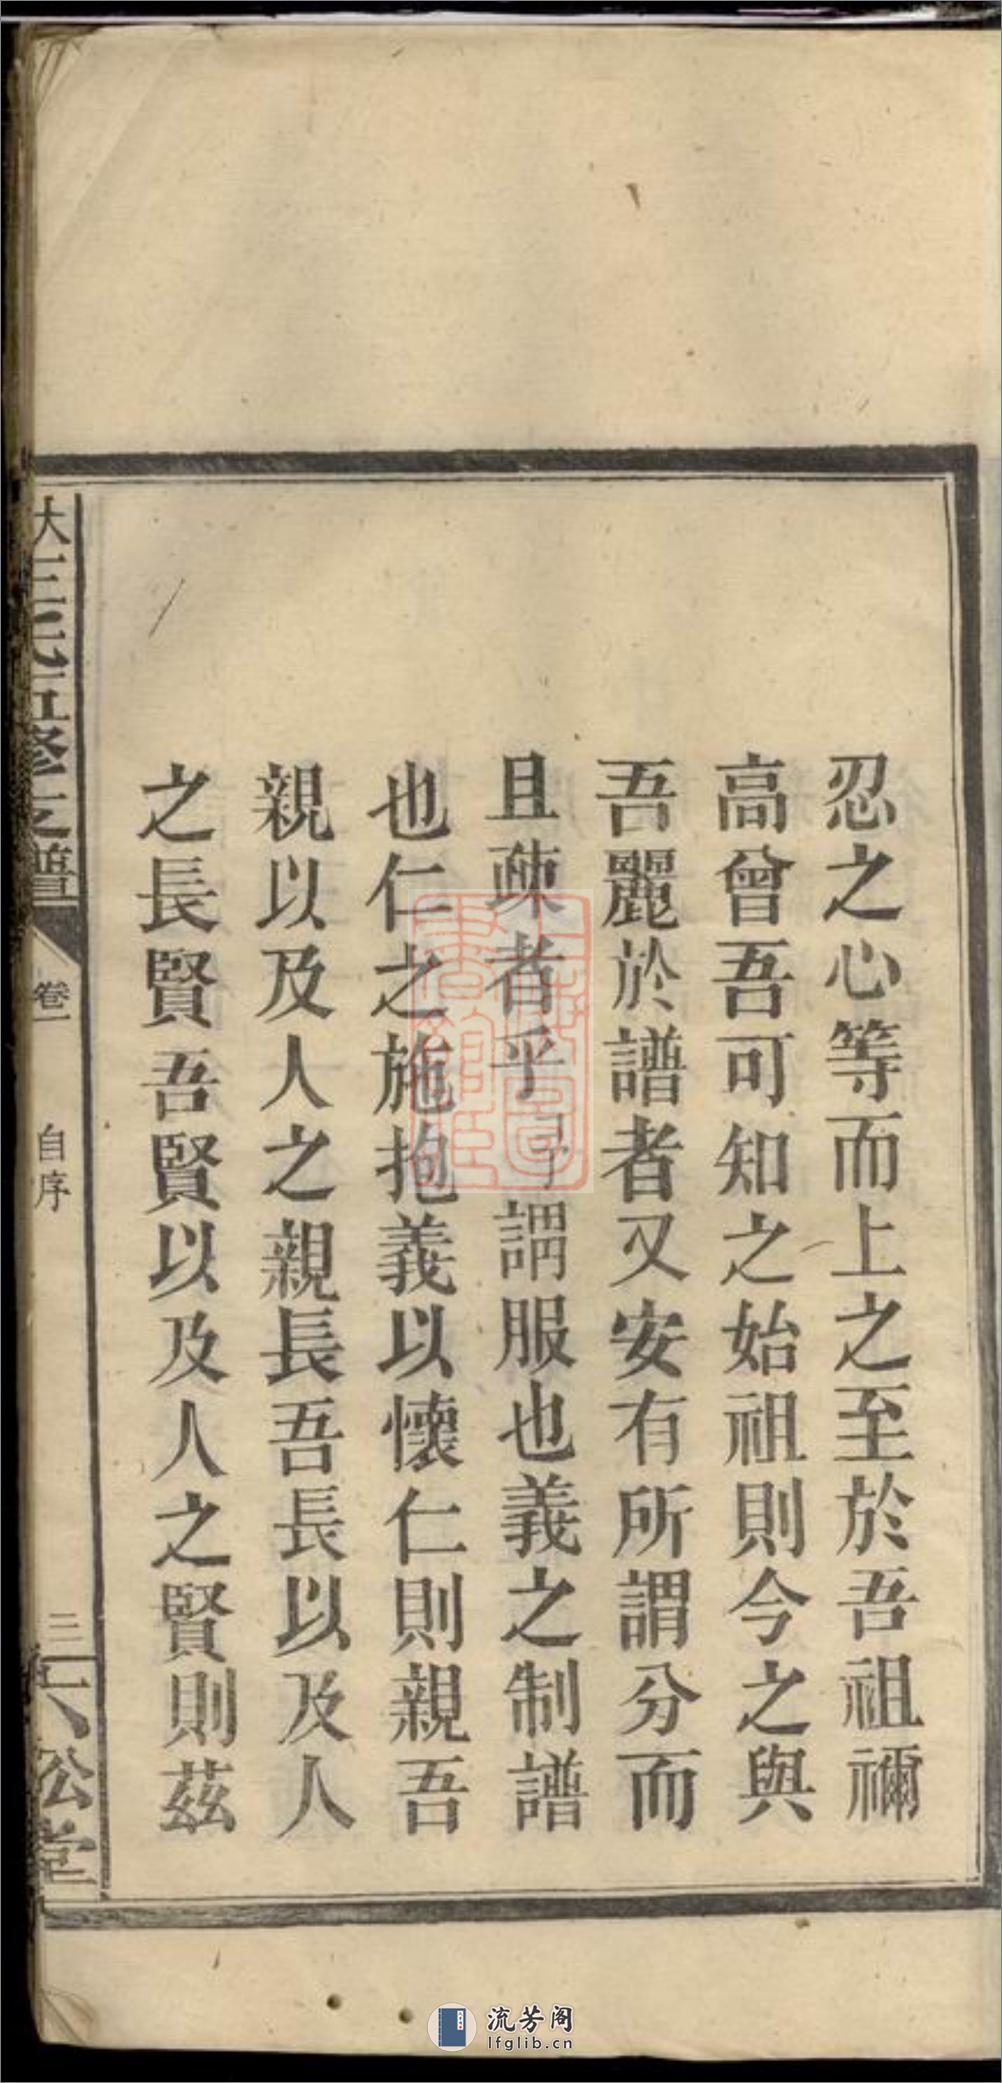 忍之心等而上之至於吾祖禰
高曾吾可知之始祖則今之與
吾麗於譜者又安有所謂分而
且疎者乎尋謂服也義之制譜
也仁之施抱義以懷仁則親吾
親以及人之親長吾長以及人
之長賢吾賢以及人之賢則茲
王氏五修支譜
卷一
自序
三
公堂
流芳阁
lfglib.cn